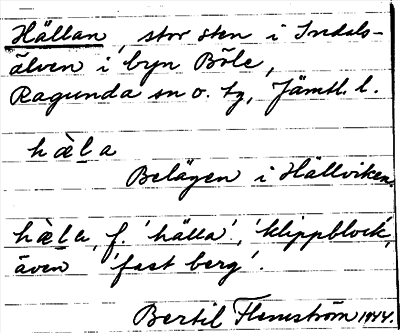 Hällan, stor sten i Indals-
älven i byn Böle,
Ragunda sn o. tg, Jämtl. l.
hæ̀la
Belägen i Hällviken.
hæ̀la, f. 'hälla', 'klippblock',
även 'fast berg'.
Bertil Flemström 1944.